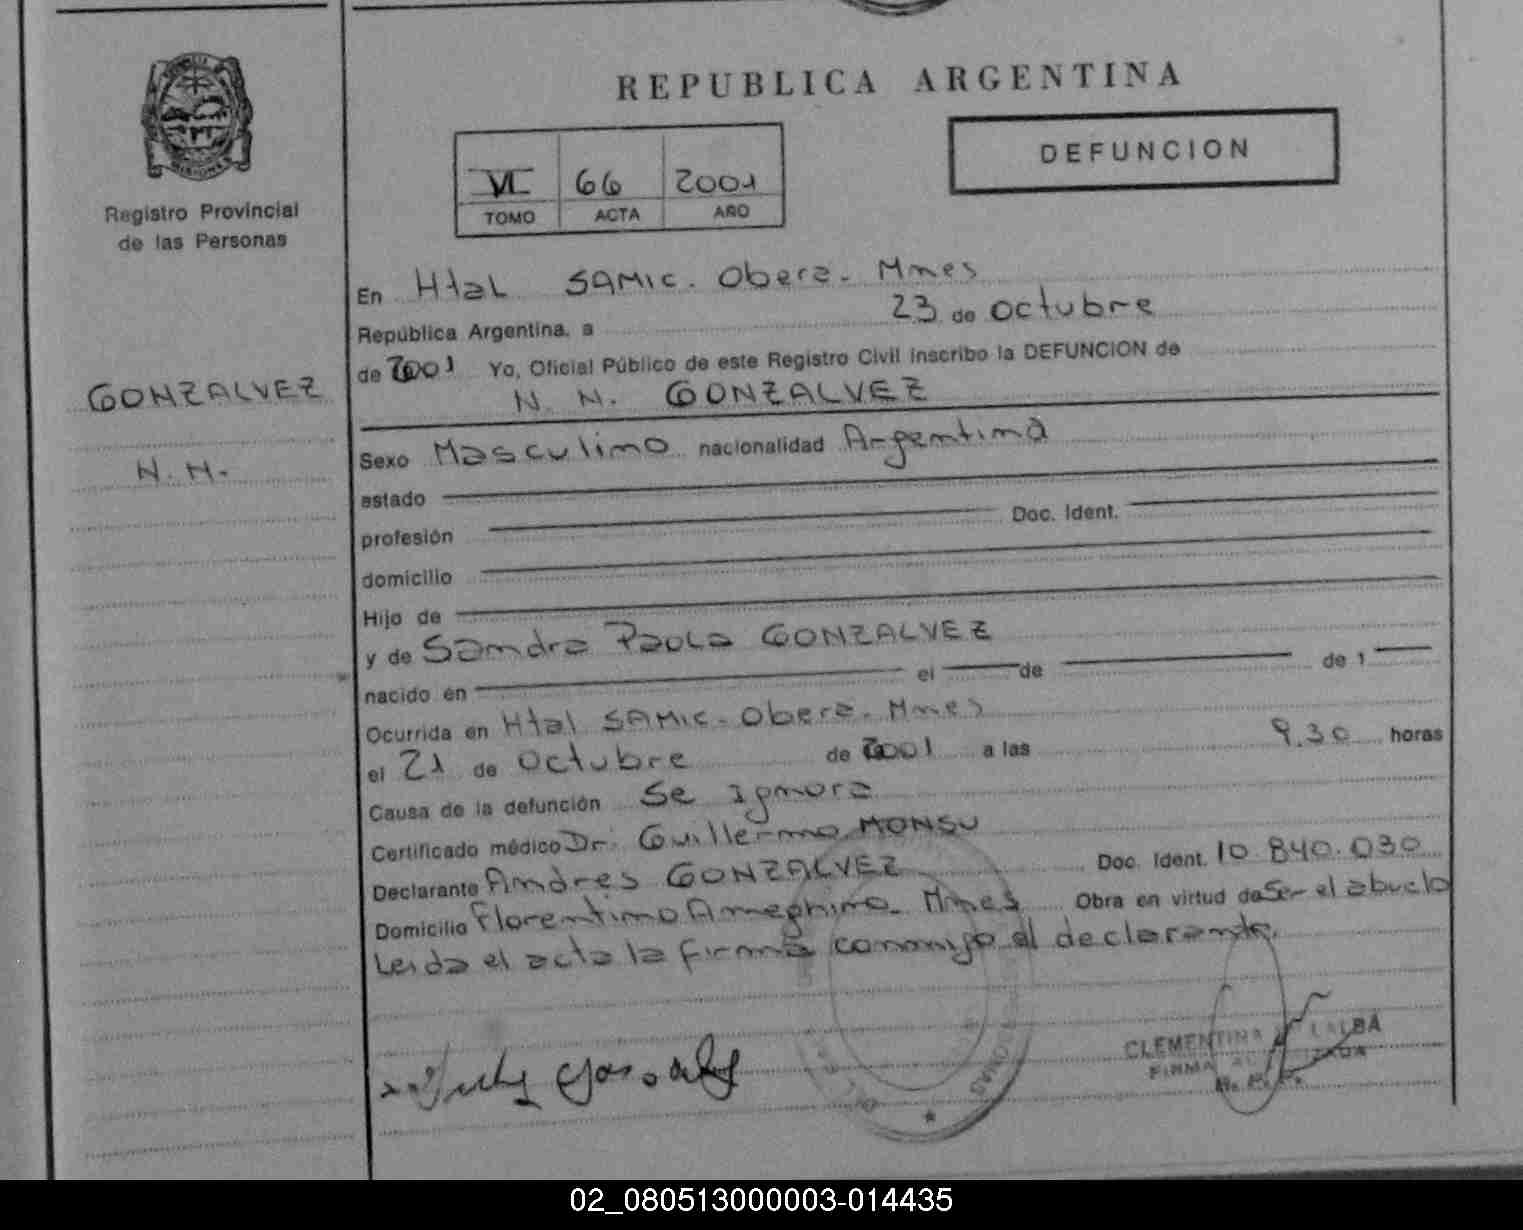 REPUBLICA ARGENTINA
DEFUNCION
VI 66 2001
TOMO ACTA AÑO
Registro Provincial
de las Personas
GONZALVEZ
N. N.
En Htal SAMIC. Obera. Mnes
República Argentina, a 23 de octubre
de 2001 Yo, Oficial Público de este Registro Civil inscribo la DEFUNCION de
N. N. GONZALVEZ
Sexo Masculino nacionalidad Argentina
estado
profesión Doc. Ident.
domicilio
Hijo de
y de Sandra Paola GONZALVEZ
nacido en el de de 1
Ocurrida en Htal SAMIC. Obera. Mnes
el 21 de octubre de 2001 a las 9.30 horas
Causa de la defunción Se Ignora
Certificado médico Dr. Guillermo MONSU
Declarante Andres GONZALVEZ Doc. Ident. 10.840.030
Domicilio Florentino Ameghino. Mnes Obra en virtud de Ser el abuelo
Leida el acta la firma conmigo el declarante.
CLEMENTINA
FIRMA
02_080513000003-014435